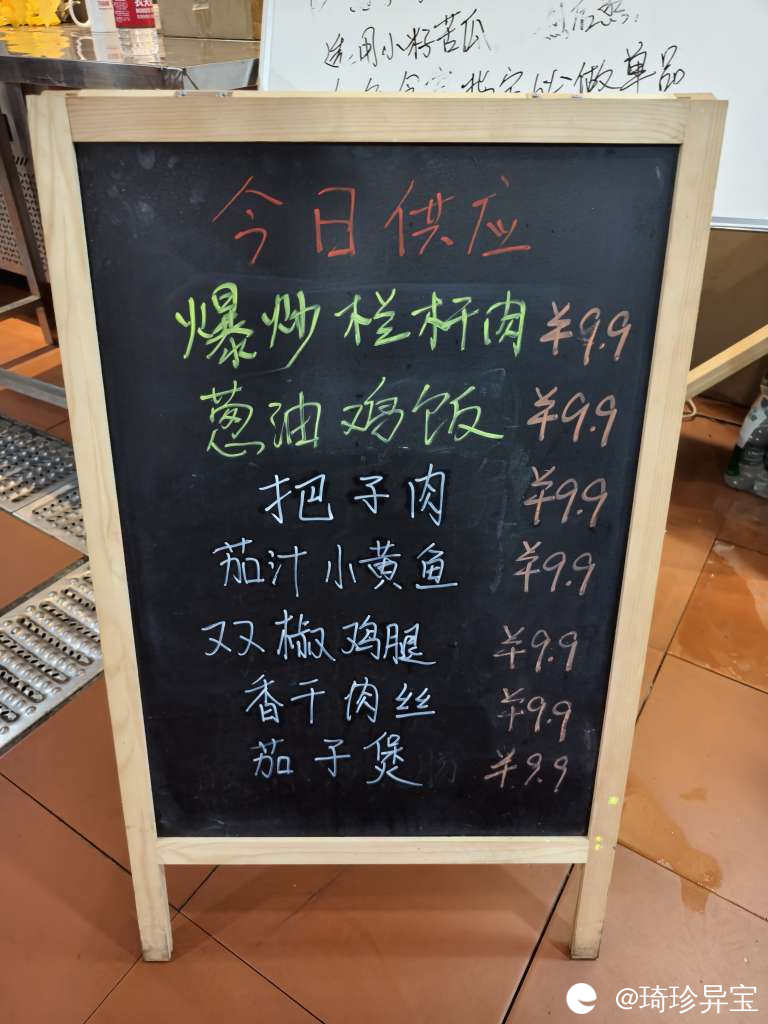 适用小籽苦瓜
做单品
今日供应
爆炒栏杆肉 ¥9.9
葱油鸡饭 ¥9.9
把子肉 ¥9.9
茄汁小黄鱼 ¥9.9
双椒鸡腿 ¥9.9
香干肉丝 ¥9.9
茄子煲 ¥9.9
@琦珍异宝